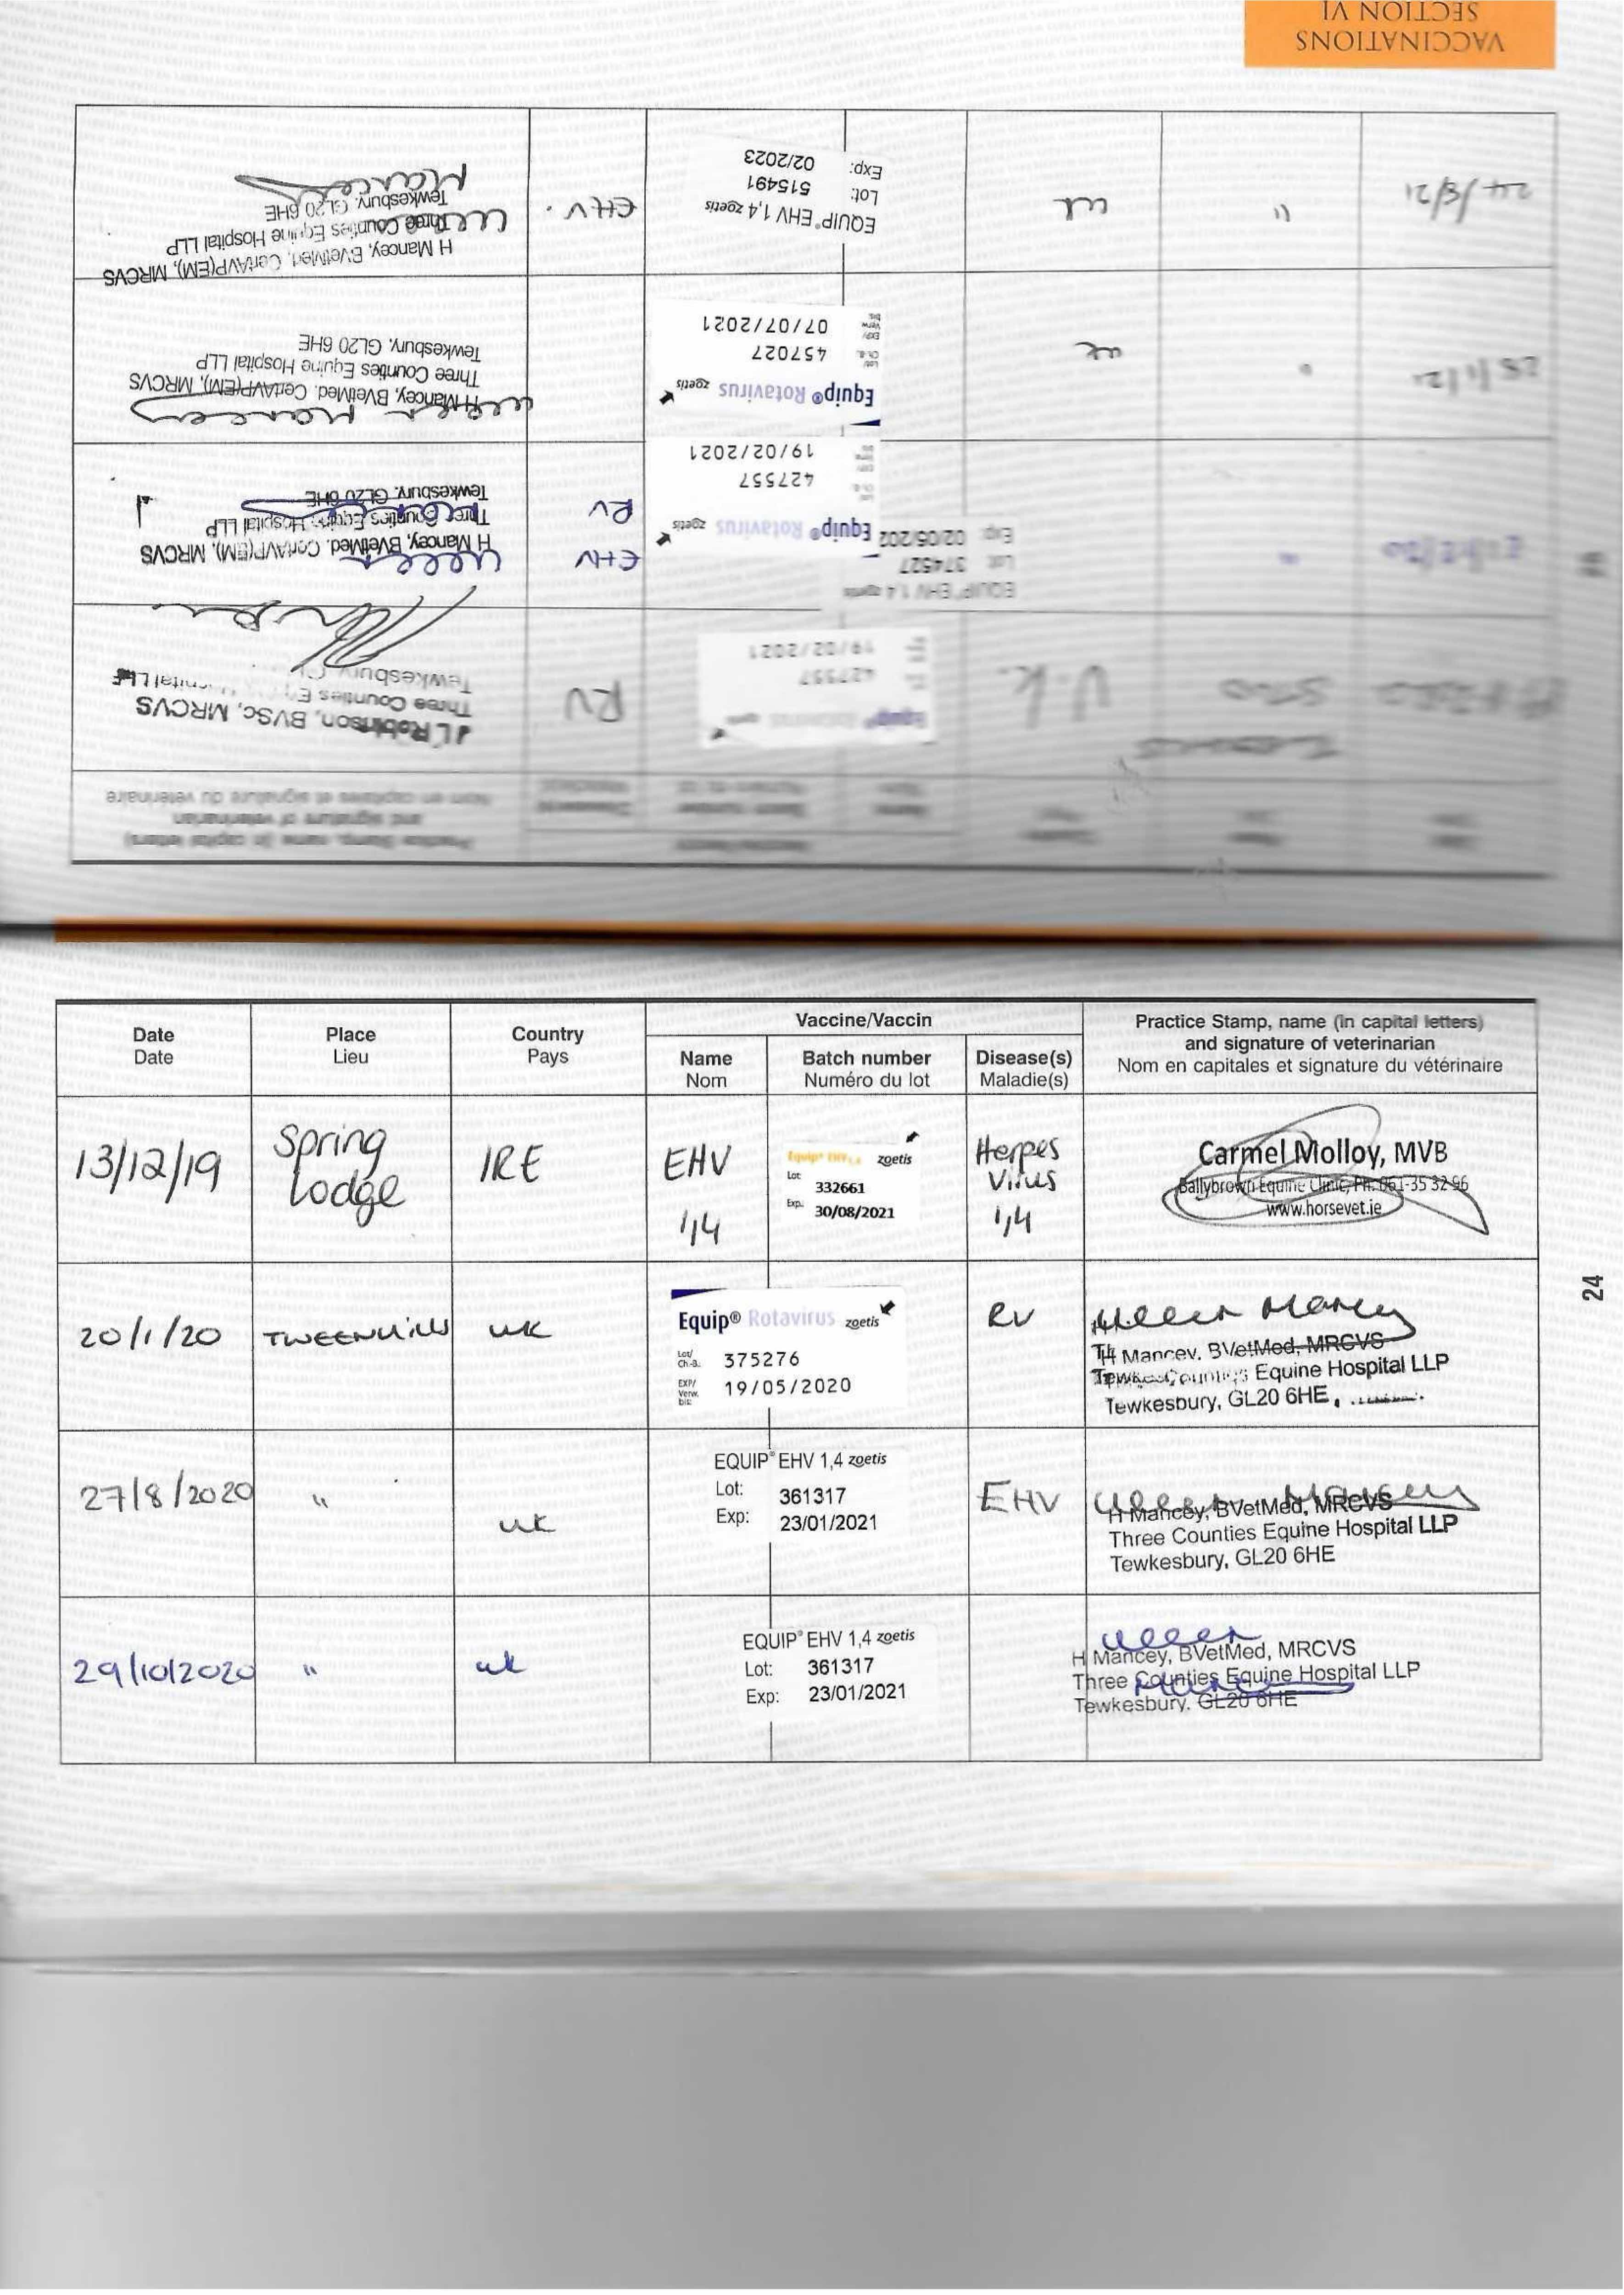 Date
Date
Place
Lieu
Country
Pays
Vaccine/Vaccin
Name
Nom
Batch number
Numéro du lot
Disease(s)
Maladie(s)
Practice Stamp, name (in capital letters)
and signature of veterinarian
Nom en capitales et signature du vétérinaire
13/12/19
Spring
Lodge
IRE
EHV
1,4
Equip® EHV 1,4 zoetis
Lot 332661
Exp. 30/08/2021
Herpes
Virus
1,4
Carmel Molloy, MVB
Ballybrown Equine Clinic, Ph. 061-35 32 96
www.horsevet.ie
20/1/20
TWEENHILLS
UK
Equip® Rotavirus zoetis
Lot/
Ch.-B. 375276
EXP/
Verw.
bis: 19/05/2020
RV
Helen Mancey
H Mancey, BVetMed, MRCVS
Equine Hospital LLP
Tewkesbury, GL20 6HE
27/8/2020
"
UK
EQUIP® EHV 1,4 zoetis
Lot: 361317
Exp: 23/01/2021
EHV
Helen Mancey
H Mancey, BVetMed, MRCVS
Three Counties Equine Hospital LLP
Tewkesbury, GL20 6HE
29/10/2020
"
UK
EQUIP® EHV 1,4 zoetis
Lot: 361317
Exp: 23/01/2021
Helen
H Mancey, BVetMed, MRCVS
Three Counties Equine Hospital LLP
Tewkesbury, GL20 6HE
24
STUD
U.K.
Equip®
427557
19/02/2021
RV
J L Robinson, BVSc, MRCVS
Three Counties
Tewkesbury,
"
EQUIP® EHV 1,4 zoetis
Lot: 374527
Exp: 02/05/202
Equip® Rotavirus zoetis
427557
19/02/2021
EHV
RV
Helen
H Mancey, BVetMed. CertAVP(EM), MRCVS
Three Counties Equine Hospital LLP
Tewkesbury. GL20 6HE
"
UK
Equip® Rotavirus zoetis
Lot/
Ch.-B. 457027
EXP/
Verw.
bis: 07/07/2021
Helen Mancey
H Mancey, BVetMed. CertAVP(EM), MRCVS
Three Counties Equine Hospital LLP
Tewkesbury, GL20 6HE
24/8/21
"
UK
EQUIP® EHV 1,4 zoetis
Lot: 515491
Exp: 02/2023
EHV.
H Mancey, BVetMed, CertAVP(EM), MRCVS
Three Counties Equine Hospital LLP
Tewkesbury. GL20 6HE
Helen Mancey
VACCINATIONS
SECTION VI